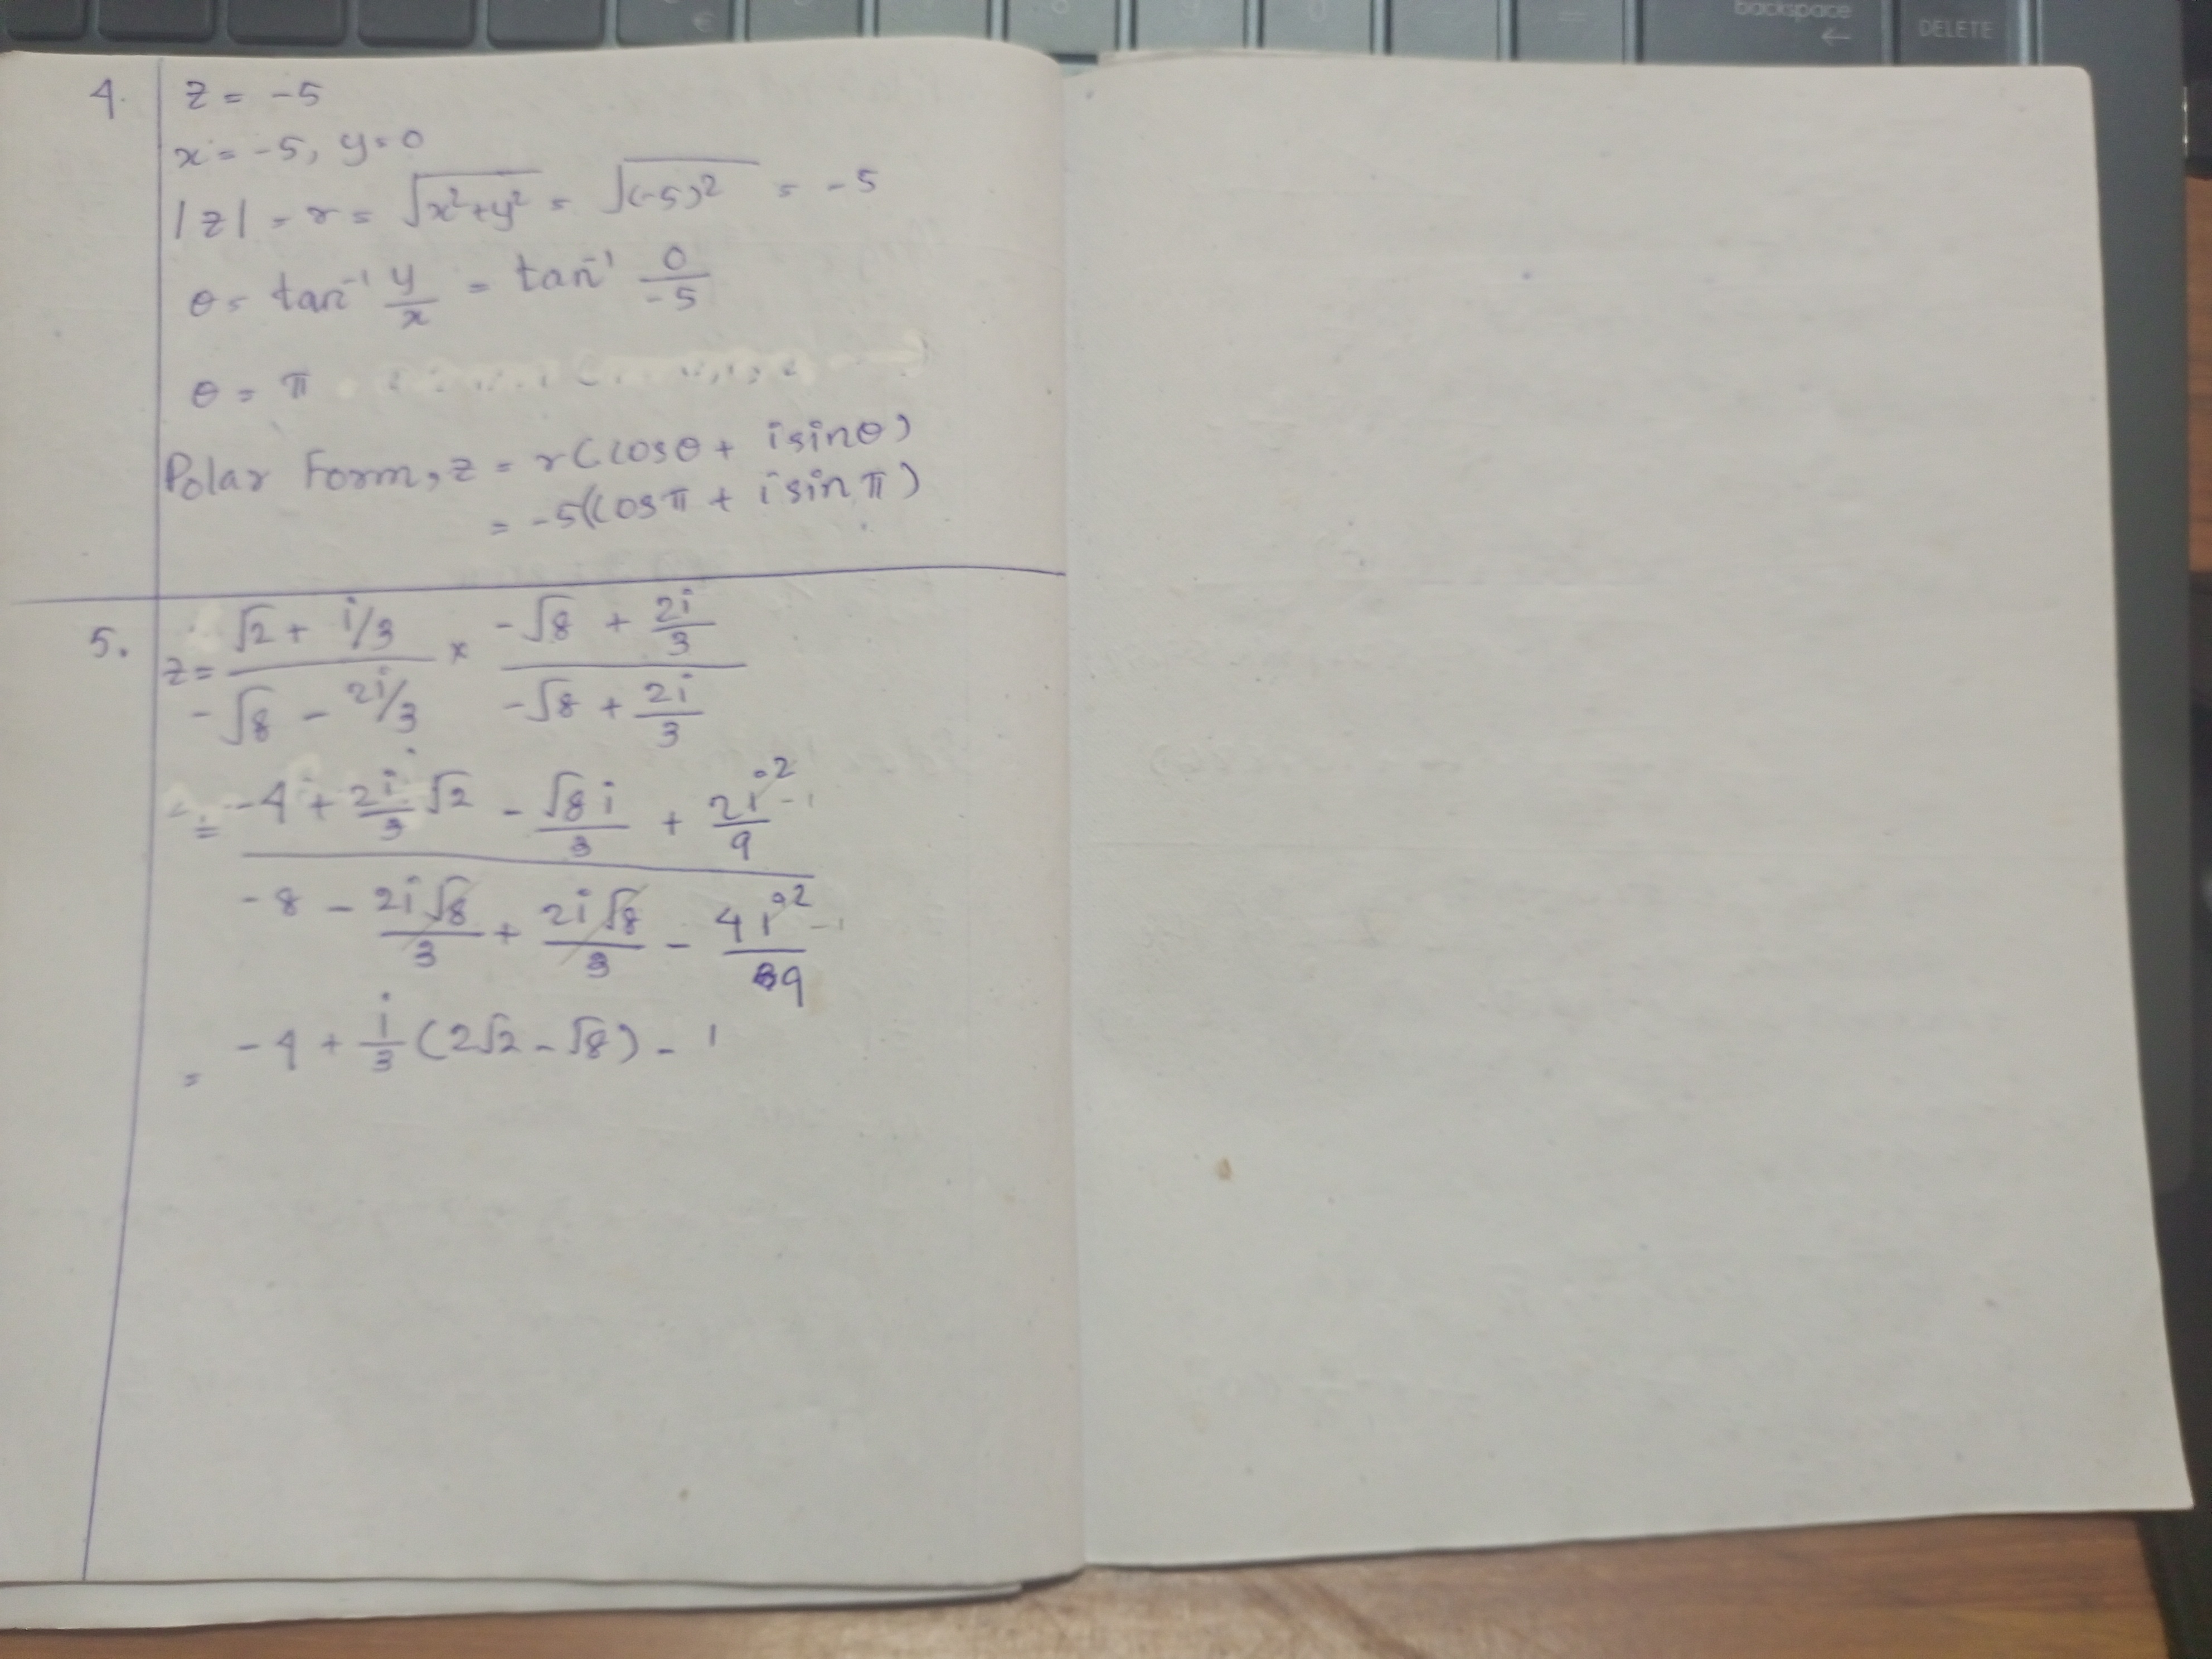 backspace
←
DELETE
€
4.
z = -5
x = -5, y = 0
|z| = r = √(x²+y²) = √((-5)²) = -5
θ = tan⁻¹ y/x = tan⁻¹ 0/-5
θ = π
Polar Form, z = r(cosθ + isinθ)
= -5(cosπ + i sinπ)
5.
z = (√2 + i/3)/(-√8 - 2i/3) × (-√8 + 2i/3)/(-√8 + 2i/3)
= (-4 + 2i/3 √2 - √8i/3 + 2i²/9 -1)/(-8 - 2i√8/3 + 2i√8/3 - 4i²/9 -1)
= -4 + i/3 (2√2 - √8) - 1